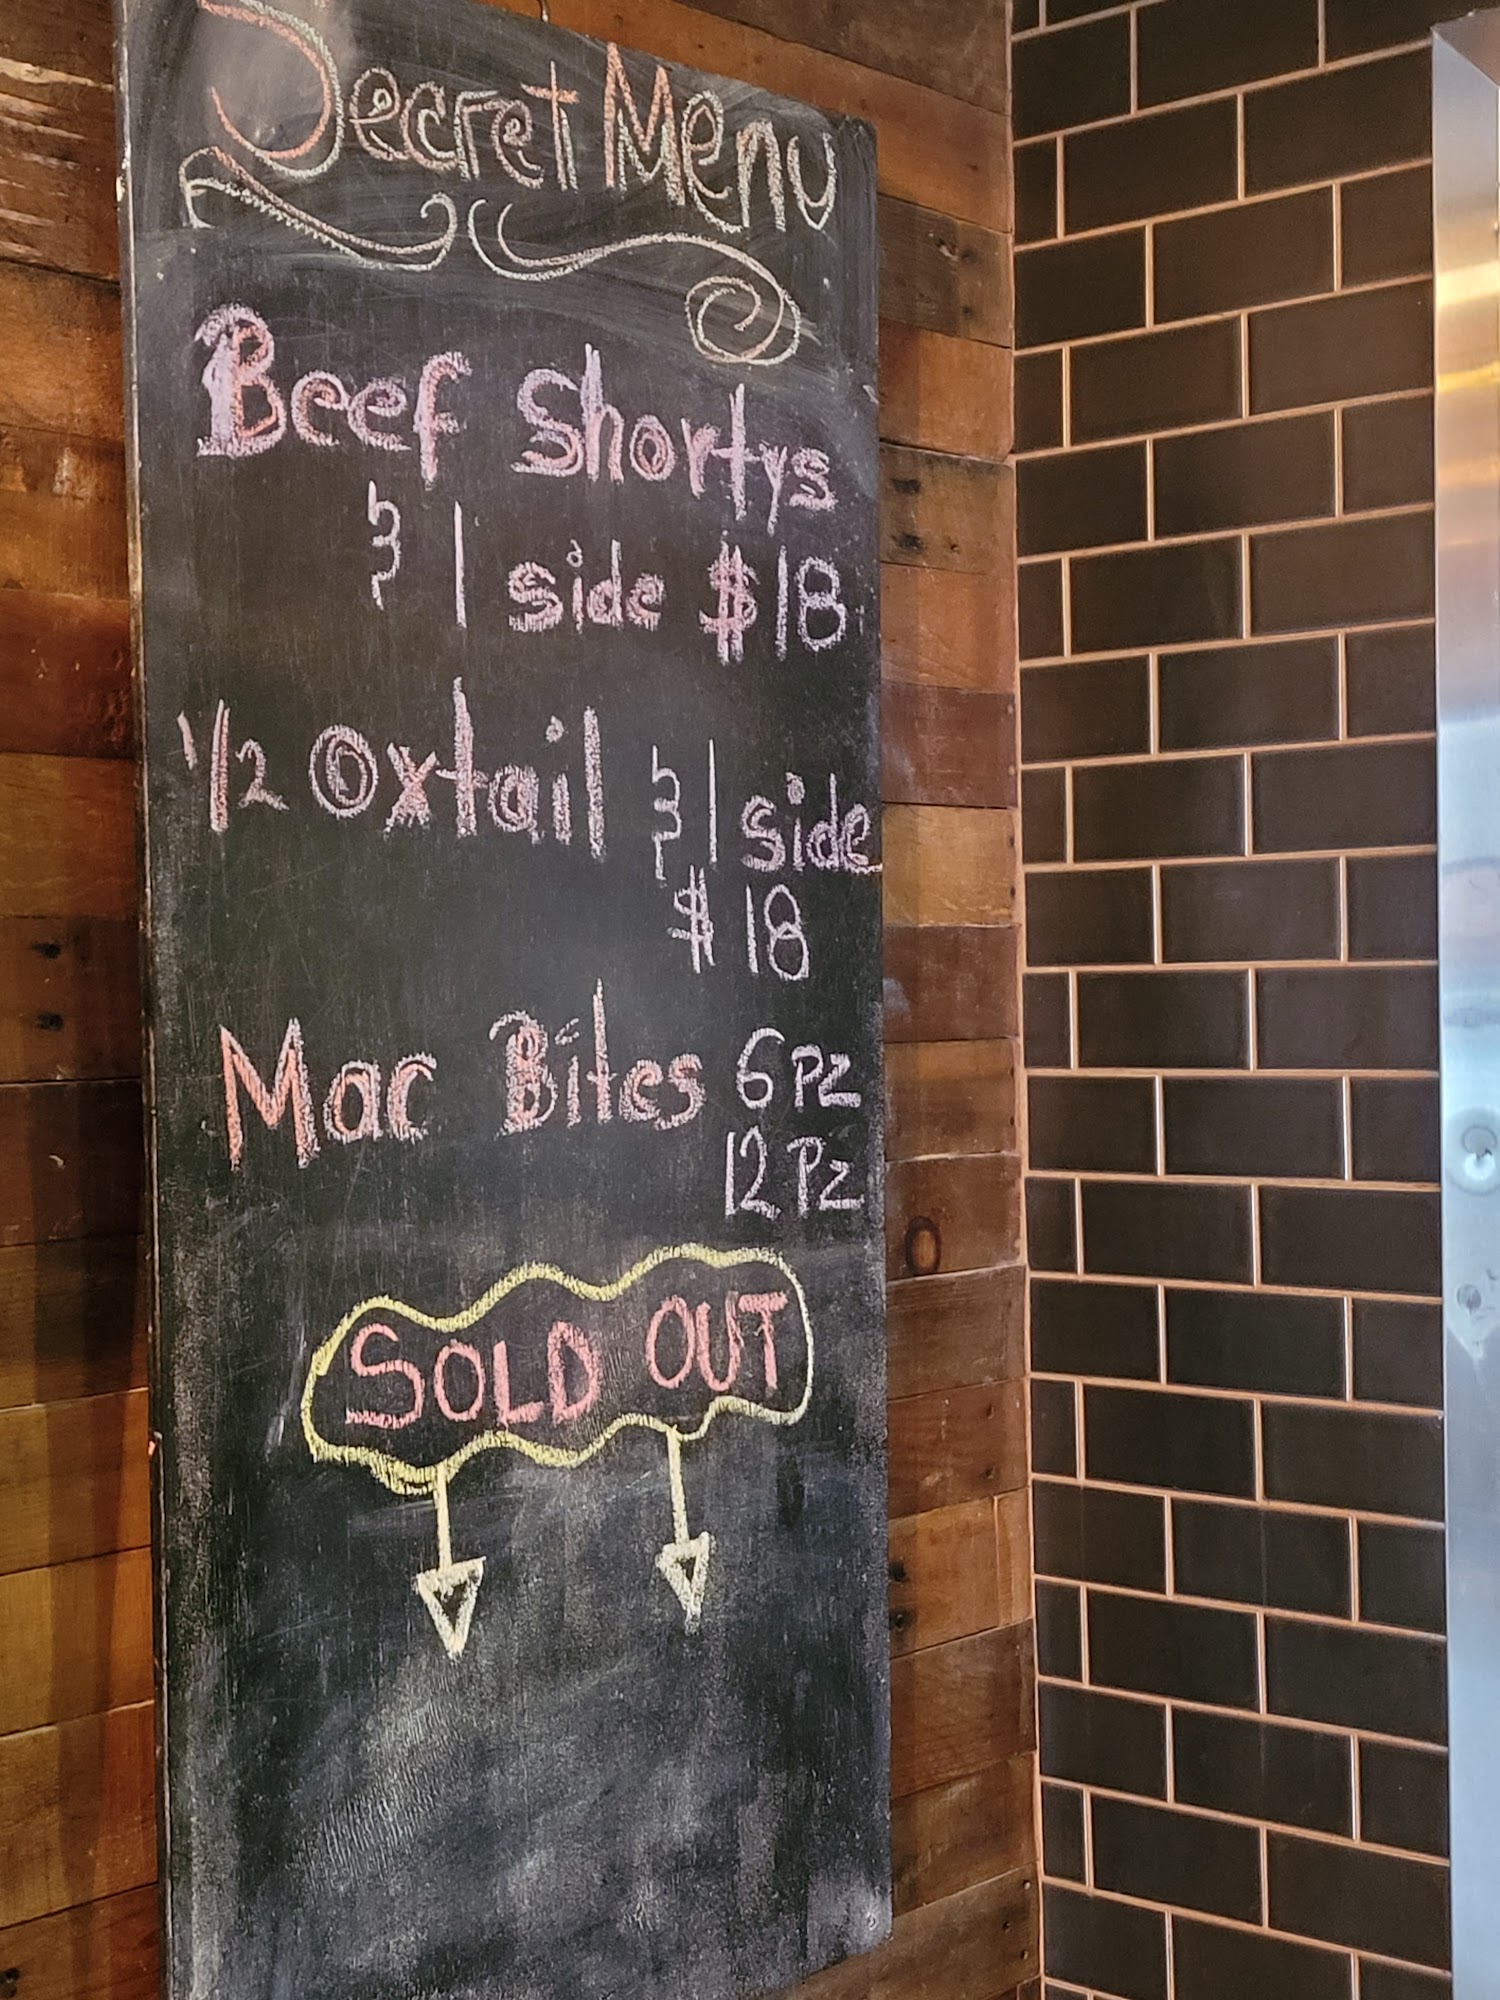 Secret Menu
Beef Shortys
& 1 side $18
1/2 Oxtail & 1 side
$18
Mac Bites 6 Pz
12 Pz
SOLD OUT